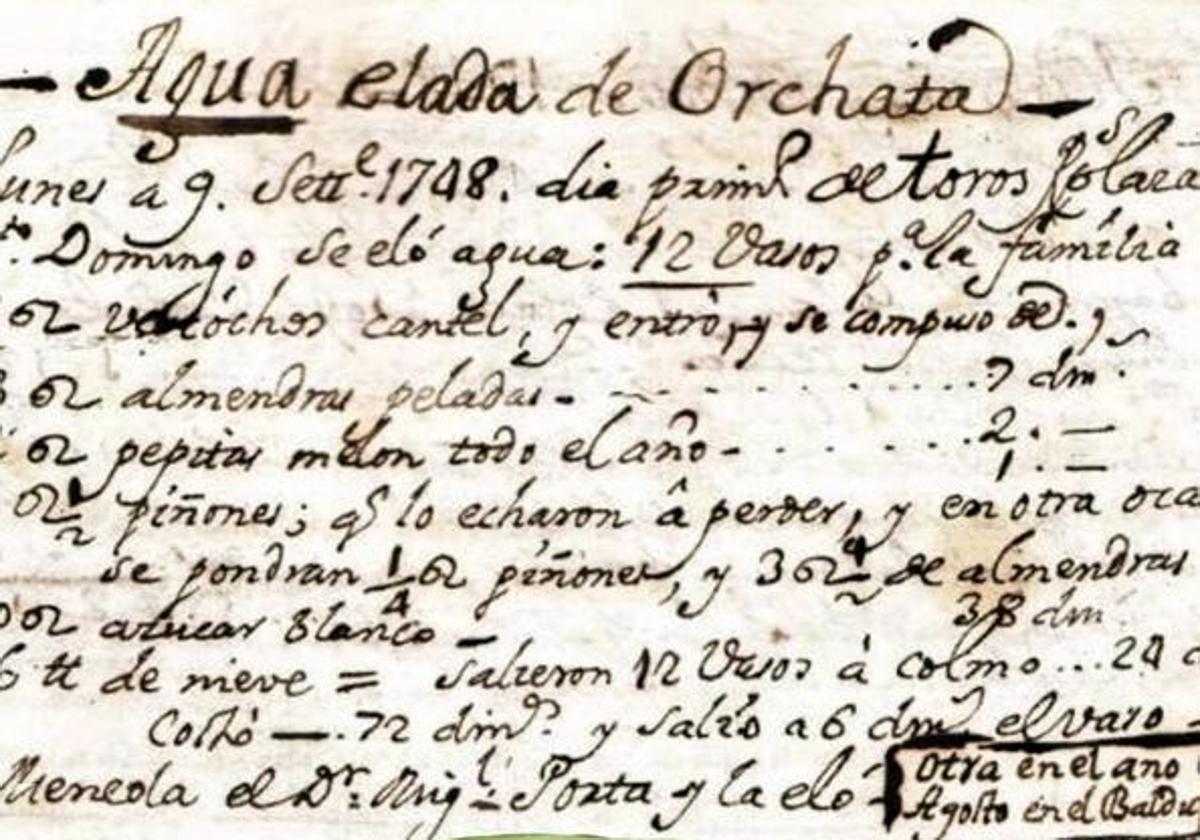 — Agua elada de Orchata —
Lunes a 9. Sett.e 1748. dia primr. de toros Ps. Plaza
to. Domingo se eló agua: 12 Vasos p.a la familia
oz vescóchos cantel, y entró, y se compuso de.,
3 oz almendras peladas - . . . . . . . 7 dm.
oz pepitas melon todo el año - . . . . . 2. —
oz 1/2 piñones; qe lo echaron â perder, y en otra oca 1. =
se pondran 1/4 oz piñones, y 3 oz 1/2 de almendras
oz azucar blanco — 38 dm
6 tt de nieve = Salieron 12 Vasos à colmo ... 24 d
Costó —. 72 dinrs. y salió a 6 dms. el vaso -
Meneola el Dr. Migl. Porta y la eló -
Otra en el ano
Agosto en el Baldu